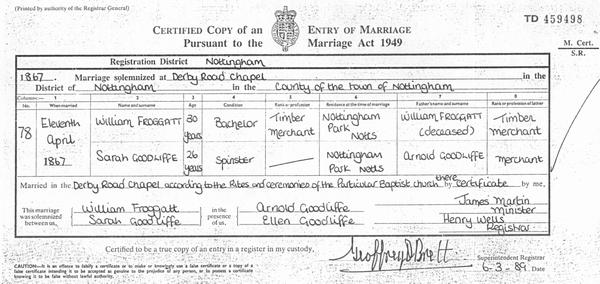 (Printed by authority of the Registrar General)
CERTIFIED COPY of an ENTRY OF MARRIAGE
Pursuant to the Marriage Act 1949
TD 459498
M. Cert.
S.R.
Registration District Nottingham
1867. Marriage solemnized at Derby Road Chapel in the
District of Nottingham in the County of the town of Nottingham
Columns:— 1 2 3 4 5 6 7 8
No. When married Name and surname Age Condition Rank or profession Residence at the time of marriage Father's name and surname Rank or profession of father
78 Eleventh April 1867 William FROGGATT 30 years Bachelor Timber merchant Nottingham Park Notts William FROGGATT (deceased) Timber merchant
Sarah GOODLIFFE 26 years Spinster Nottingham Park Notts Arnold GOODLIFFE merchant
Married in the Derby Road Chapel according to the Rites and ceremonies of the Particular Baptist church there by certificate by me,
This marriage was solemnized between us, William Froggatt Sarah Goodliffe in the presence of us, Arnold Goodliffe Ellen Goodliffe James Martin Minister Henry Wells Registrar
Certified to be a true copy of an entry in a register in my custody,
Geoffrey D Brett Superintendent Registrar
6-3-89. Date
CAUTION:—It is an offence to falsify a certificate or to make or knowingly use a false certificate or a copy of a
false certificate intending it to be accepted as genuine to the prejudice of any person, or to possess a certificate
knowing it to be false without lawful authority.